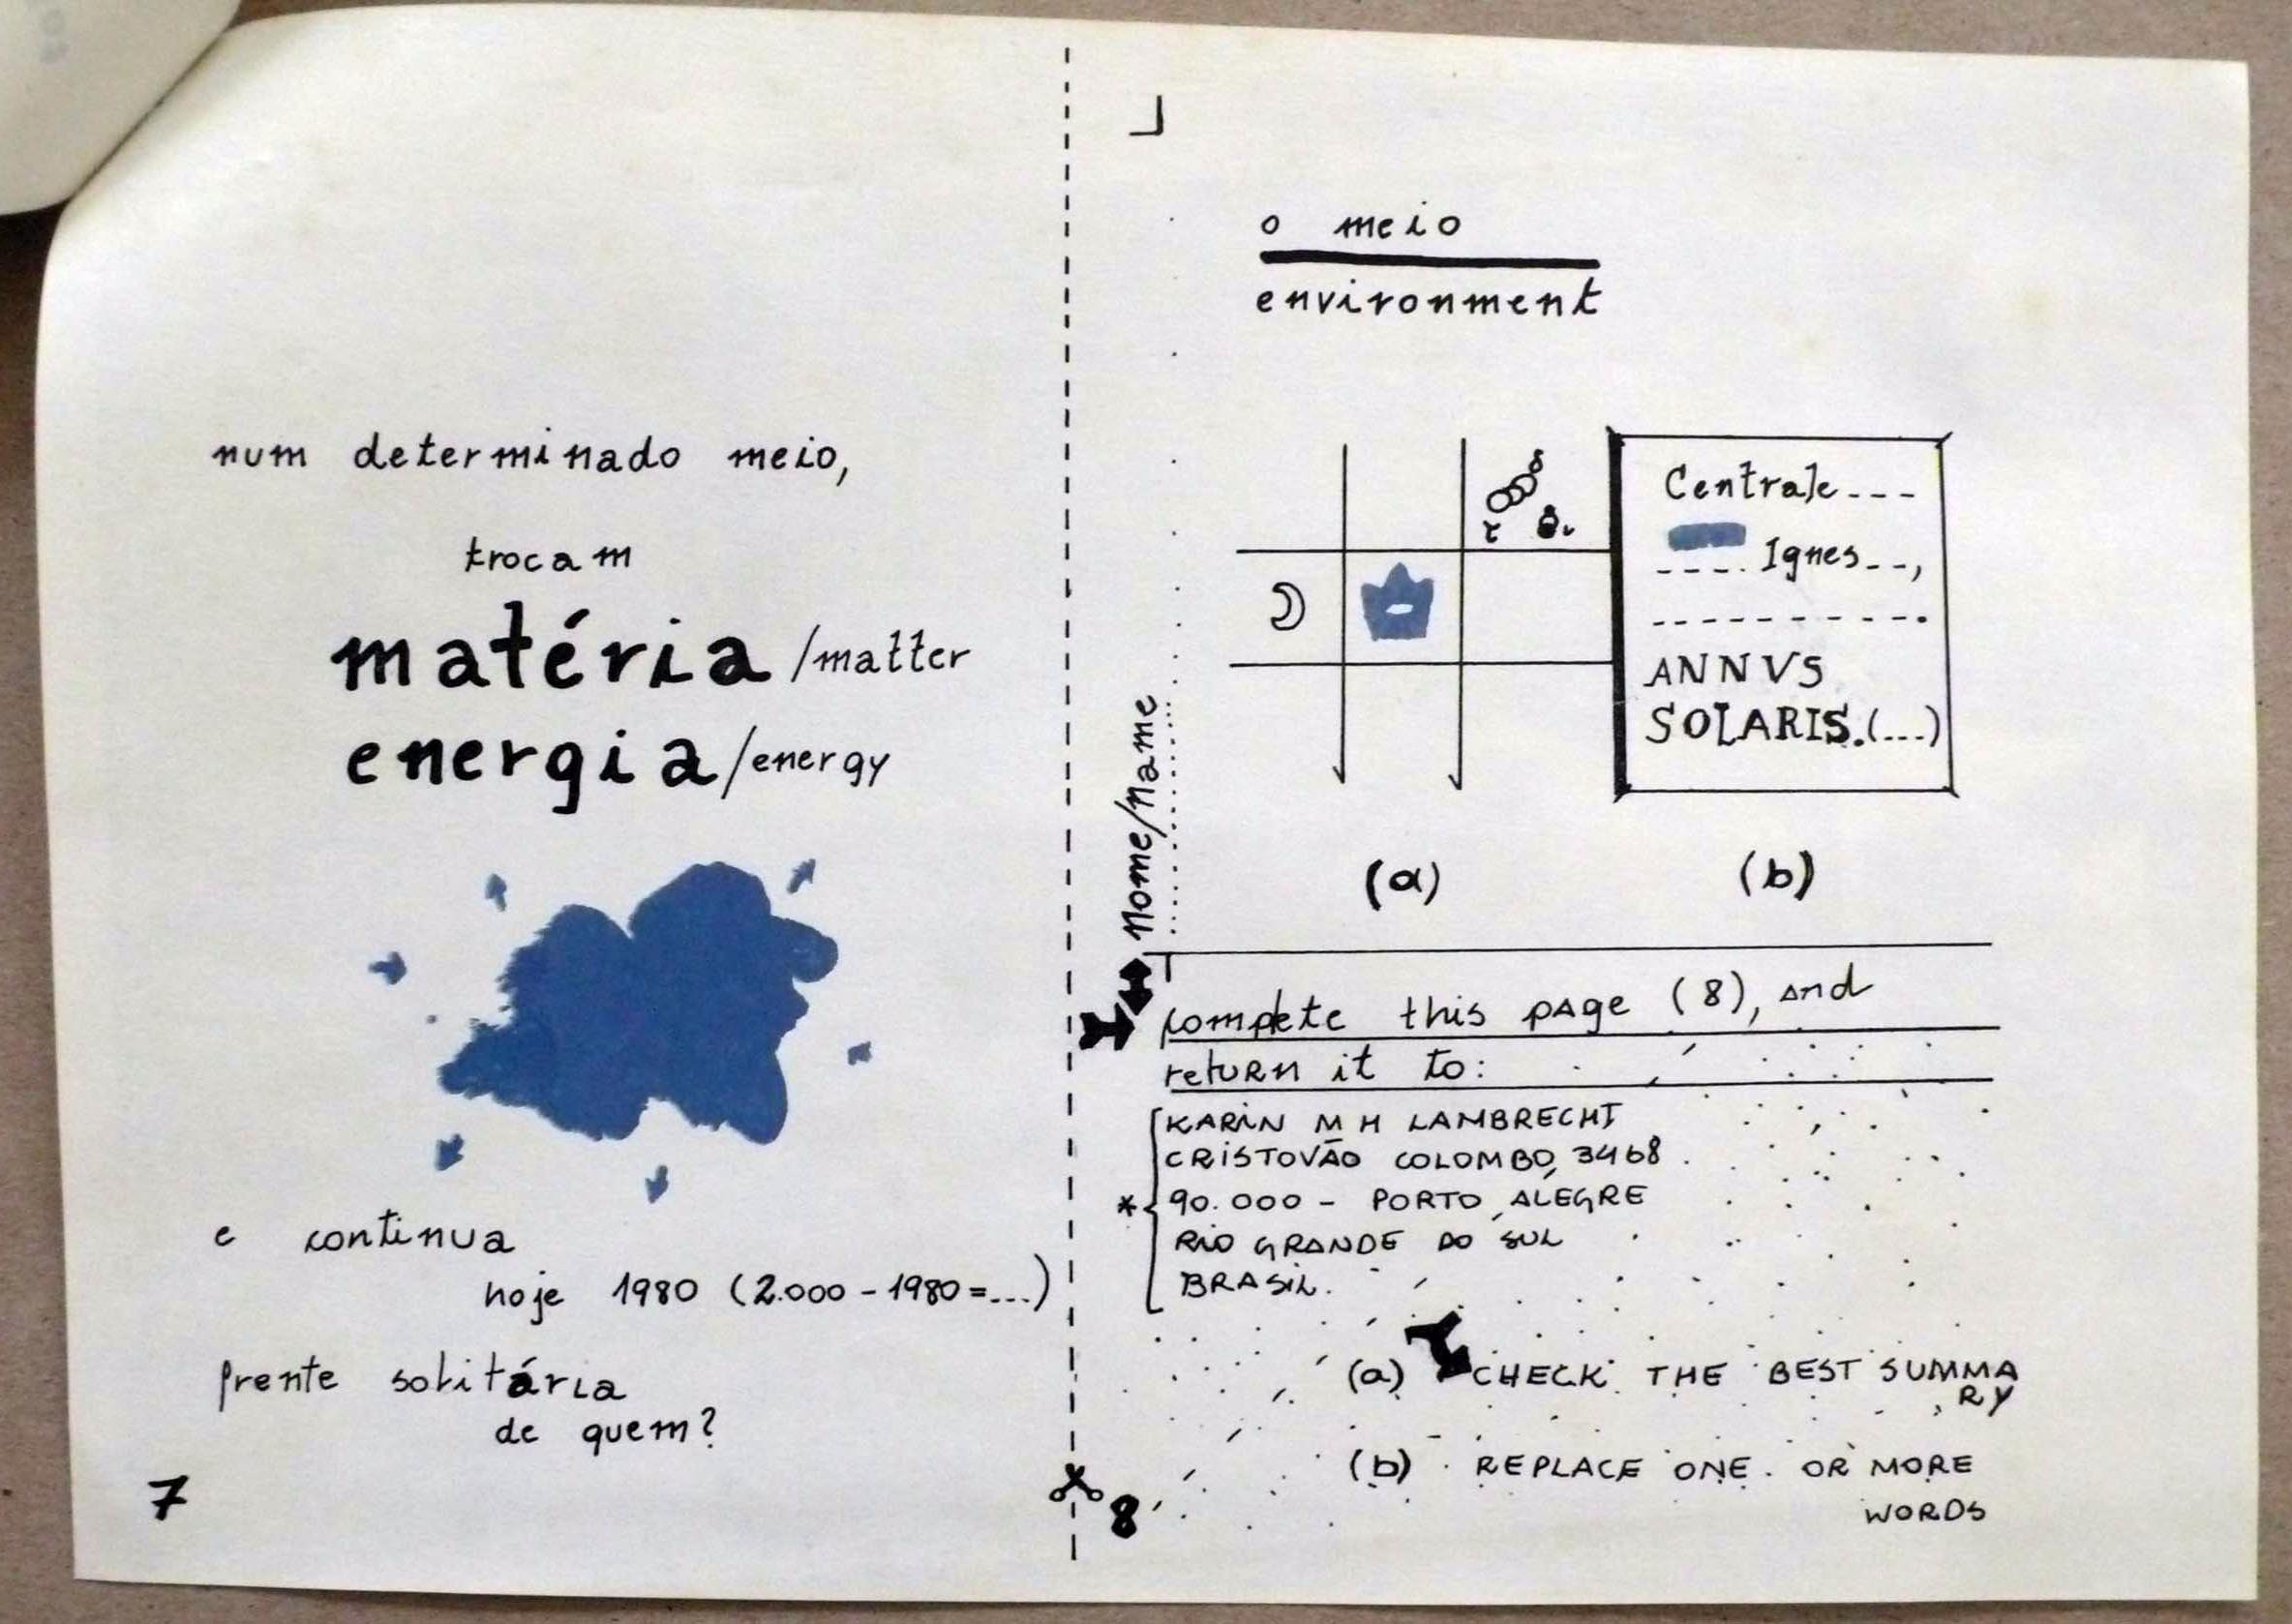 num determinado meio,
trocam
matéria/matter
energia/energy
e continua
hoje 1980 (2.000-1980=...)
frente solitária
de quem?
7
o meio
environment
Centrale---
---. Ignes--,
----------.
ANNVS
SOLARIS.(...)
(a)
(b)
Nome/name
complete this page (8), and
return it to:
KARIN M H LAMBRECHT
CRISTOVÃO COLOMBO, 3468
* 90.000 - PORTO ALEGRE
RIO GRANDE DO SUL
BRASIL.
(a) CHECK THE BEST SUMMA
RY
(b) REPLACE ONE OR MORE
WORDS
8